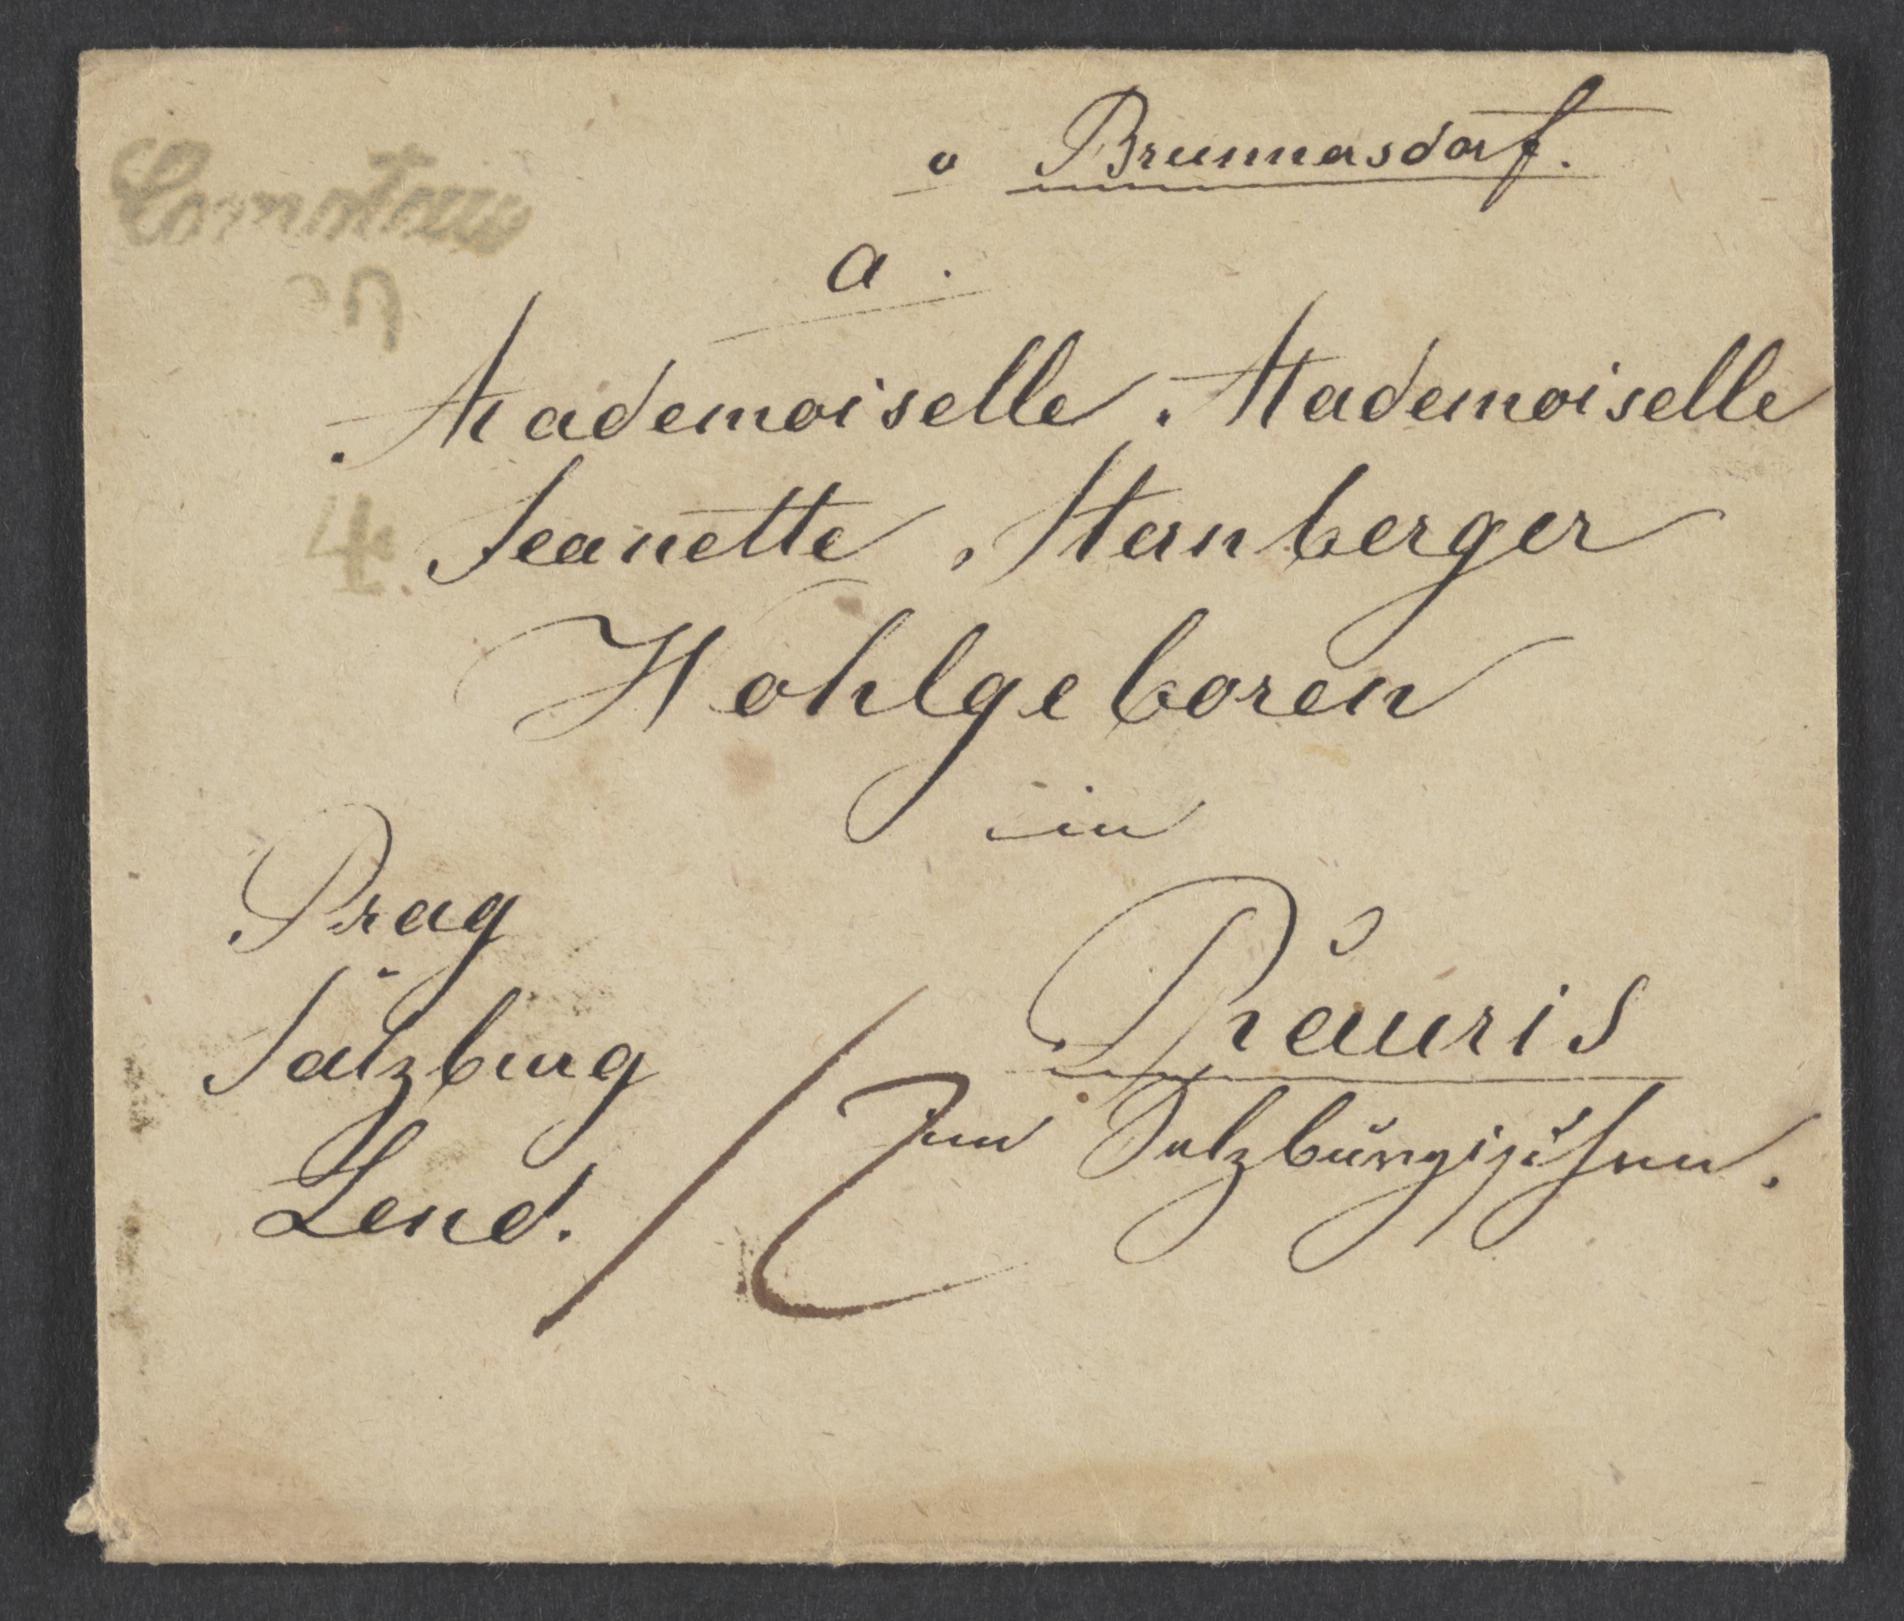 v Brunnersdorf.
Comotau
a.
Mademoiselle Mademoiselle
4.
Jeanette Sternberger
Wohlgeboren
in
Prag
Salzburg
Lend.
Rauris
im Salzburgischen.
12